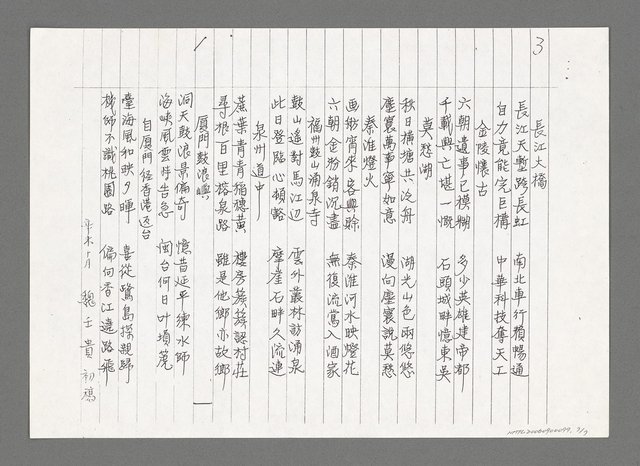 3
長江大橋
長江天塹跨長虹 南北車行積暢通
自力竟能完巨構 中華科技奪天工
金陵懷古
六朝遺事已模糊 多少英雄建帝都
千載興亡堪一慨 石頭城畔憶東吳
莫愁湖
秋日橫塘共泛舟 湖光山色兩悠悠
塵寰萬事寧如意 漫向塵寰說莫愁
秦淮燈火
画舫宵來客興賒 秦淮河水映燈花
六朝金粉銷沉盡 無復流鶯入酒家
福州鼓山湧泉寺
鼓山遥對馬江辺 雲外叢林訪湧泉
此日登臨心頓豁 摩崖石畔久流連
泉州道中
蔗葉青青稻穗黃 樓房蔟蔟認村莊
尋根百里榕泉路 雖是他鄉亦故鄉
厦門鼓浪嶼
洞天鼓浪景偏奇 憶昔延平練水師
海峡風雲時告急 閩台何日叶塤箎
自厦門経香港返台
臺海風和映夕暉 喜從鷺島探親歸
梯師不識桃園路 偏向香江遶路飛
辛未十月 魏壬貴 初稿